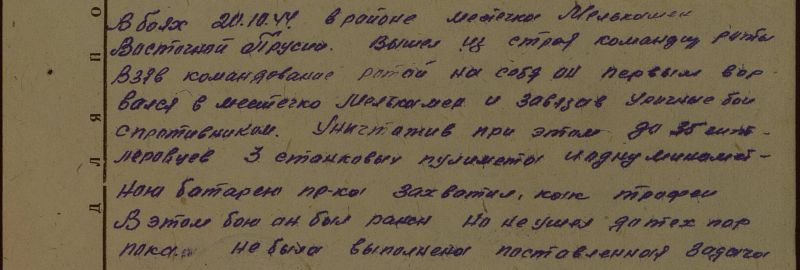 В боях 20.10.44 в районе местечка Мелькамен
Восточной Прусии. Вышел из строя командир роты
Взяв командование ротой на себя он первым вор
вался в местечко Мелькамен и завязав уличные бои
спротивником. Уничтожив при этом до 35 гит-
леровцев 3 станковых пулимета и одну миномет-
ною батарею пр-ка захватил, как трофеи
В этом бою он был ранен но не ушел до тех пор
пока не была выполнена поставленная задача
Д Л Я П О